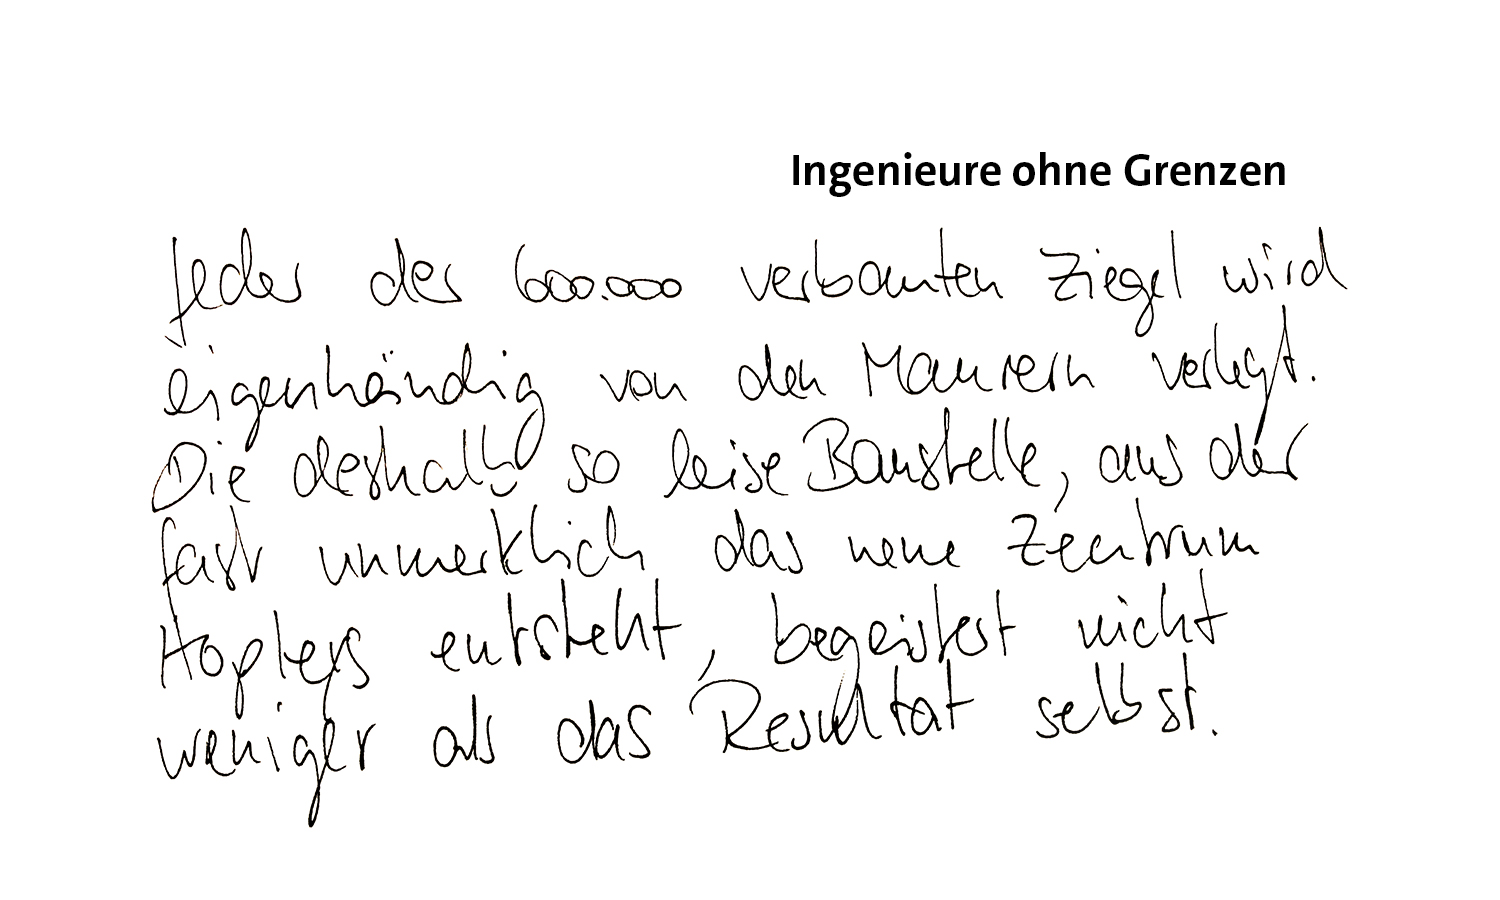 Ingenieure ohne Grenzen
Jeder der 600.000 verbauten Ziegel wird
eigenhändig von den Maurern verlegt.
Die deshalb so leise Baustelle, aus der
fast unmerklich das neue Zentrum
Hopleys entsteht, begeistert nicht
weniger als das Resultat selbst.